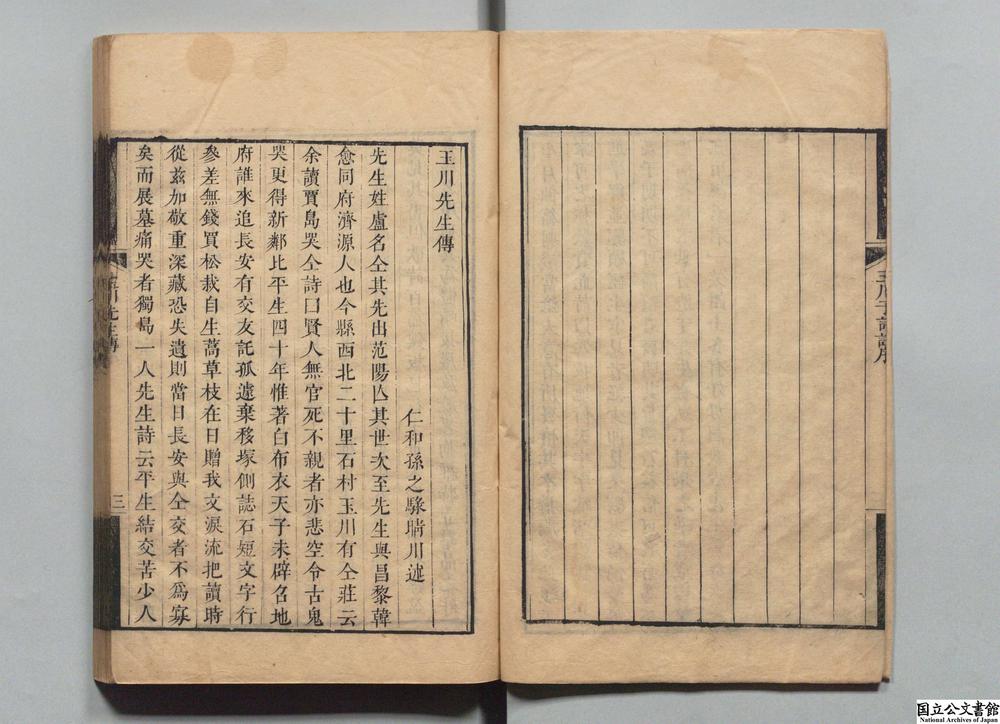 玉川子詩註序
玉川先生傳
仁和孫之騄晴川述
先生姓盧名仝其先出范陽亾其世次至先生與昌黎韓
愈同府濟源人也今縣西北二十里石村玉川有仝莊云
余讀賈島哭仝詩曰賢人無官死不親者亦悲空令古鬼
哭更得新鄰比平生四十年惟著白布衣天子未辟名地
府誰來追長安有交友託孤遽棄移塚側誌石短文字行
參差無錢買松栽自生蒿草枝在日贈我文淚流把讀時
從茲加敬重深藏恐失遺則當日長安與仝交者不爲寡
矣而展墓痛哭者獨島一人先生詩云平生結交苦少人
玉川先生傳
三
国立公文書館
National Archives of Japan